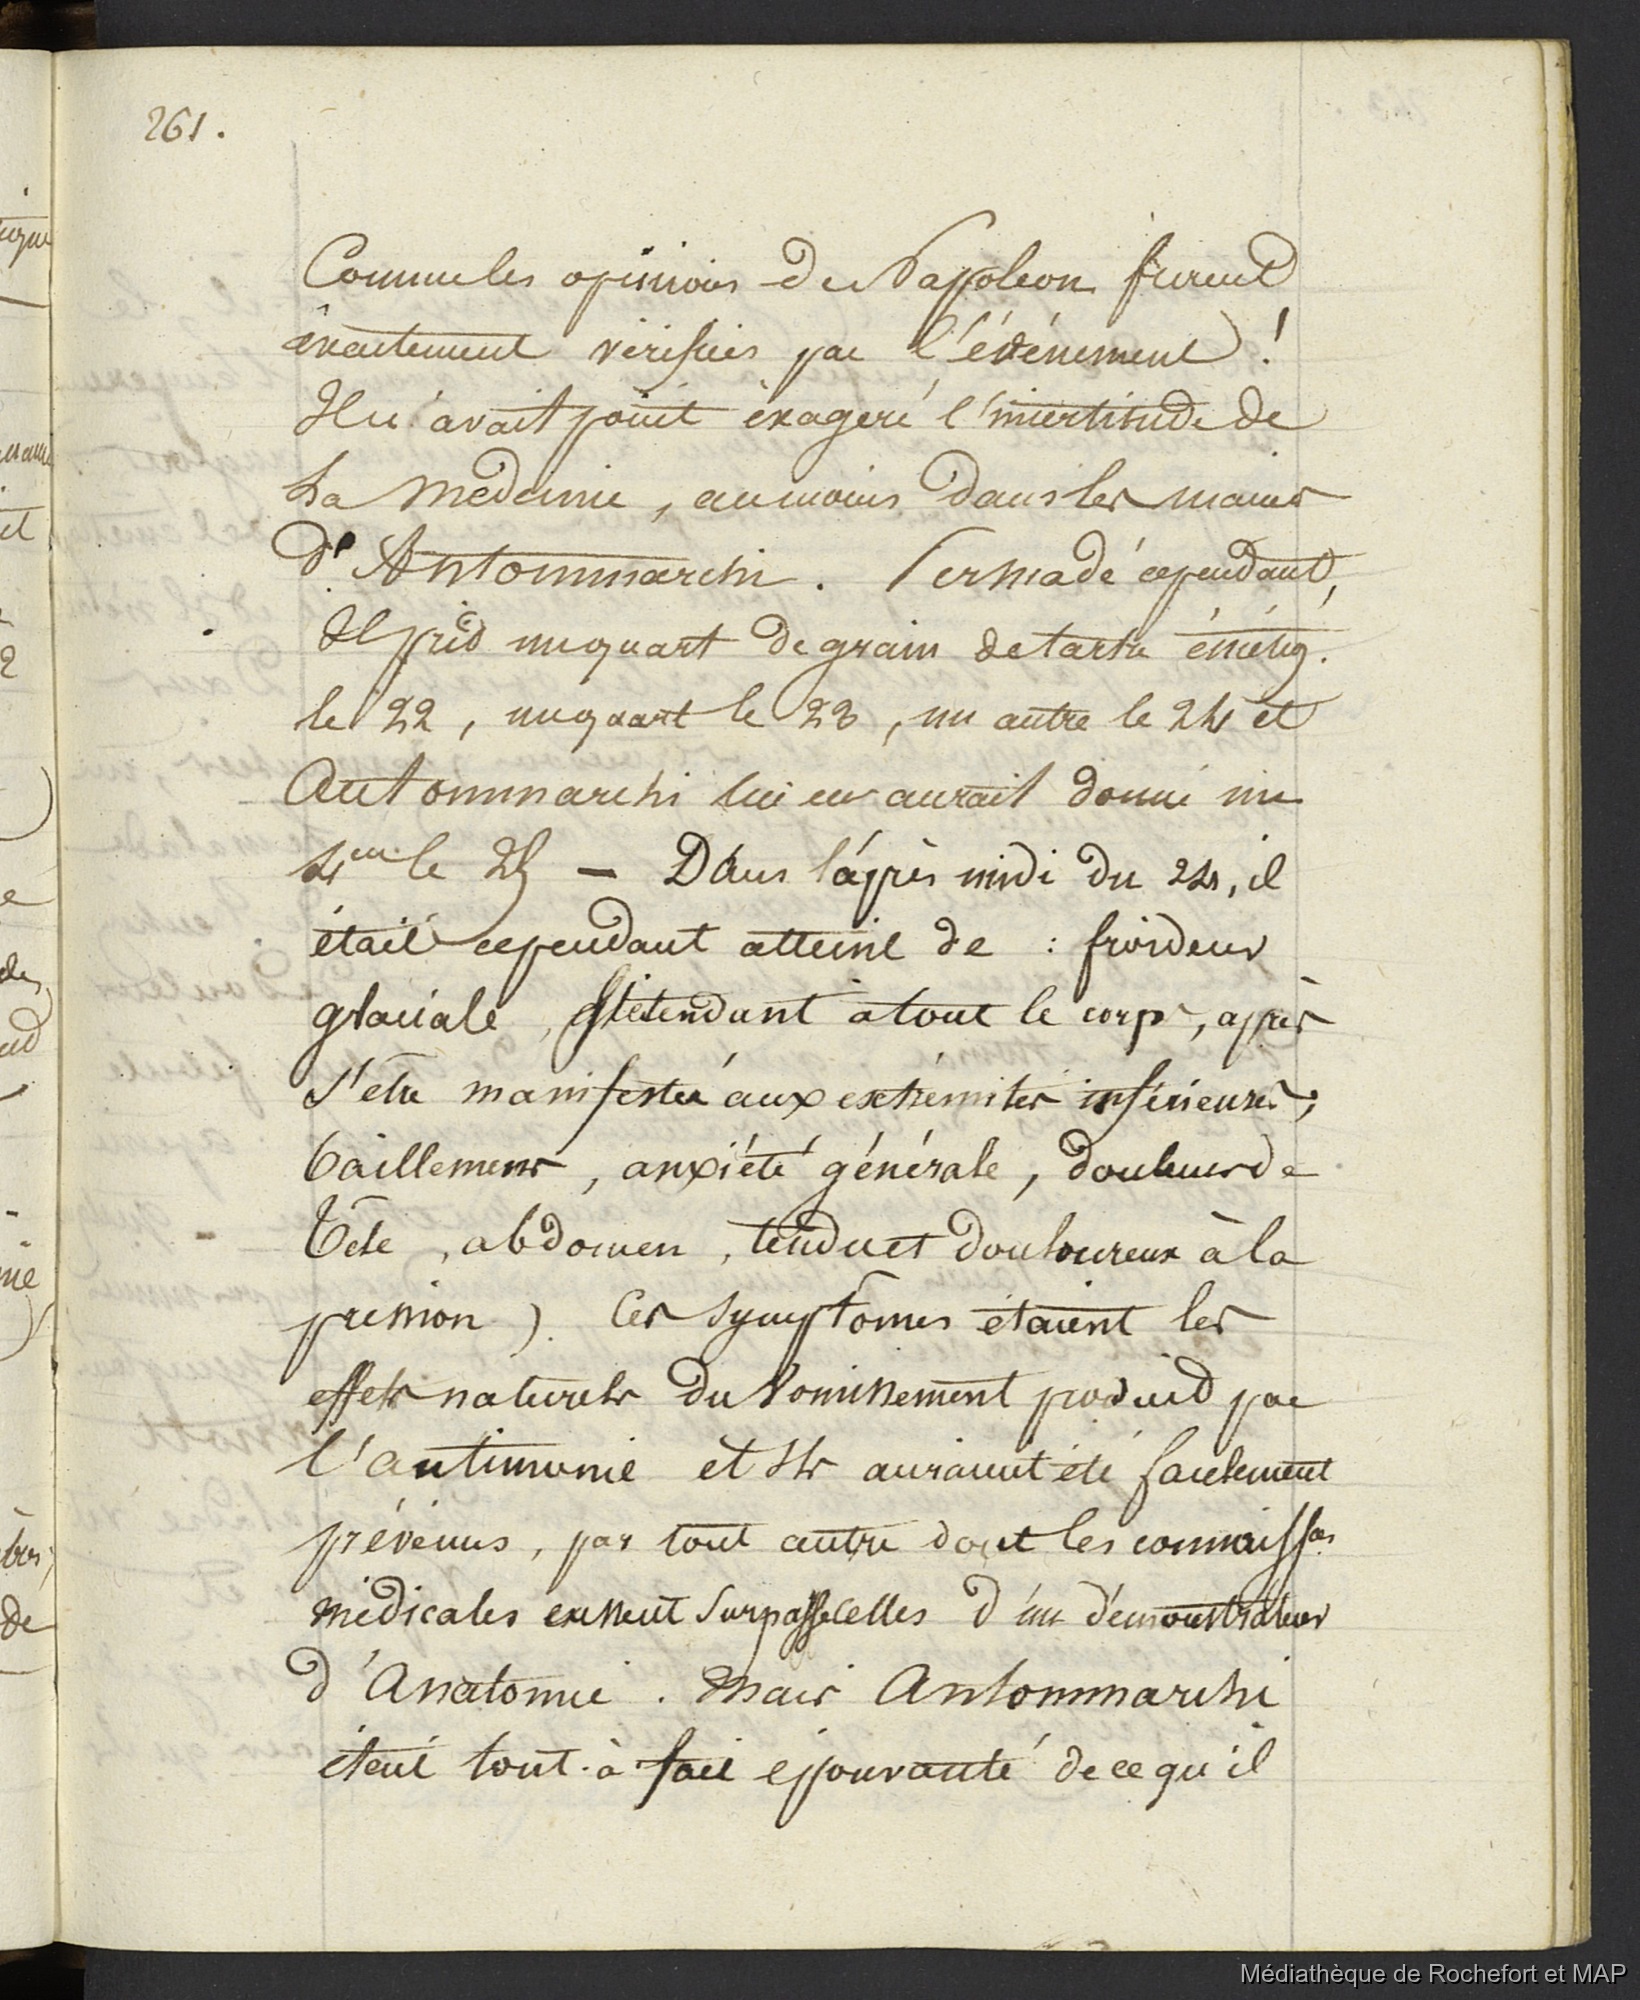 261.
Comme les opinions de Napoleon furent
éxactement vérifiées par l'événement !
Il n'avait point éxagéré l'incertitude de
La Médecine, au moins dans les mains
d'Antommarchi. Persuadé cependant,
Il prit un quart de grain de tartre émétiq.
le 22, un quart le 23, un autre le 24 et
Antommarchi lui en aurait donné un
4me le 25 — Dans l'après midi du 24, il
était cependant atteint de : froideur
glaciale, s'étendant à tout le corps, après
s'être manifestée aux extrémités inférieures,
baillemens, anxiété générale, douleurs de
tête, abdomen, tendu et douloureux à la
pression). Ces symptômes étaient les
effets naturels du Vomissement produit par
l'antimonie et Ils auraient été facilement
prévenus, par tout autre dont les connaissces
médicales eussent surpassé celles d'un démonstrateur
d'Anatomie. Mais Antommarchi
était tout-à fait épouvanté de ce qu'il
Médiathèque de Rochefort et MAP